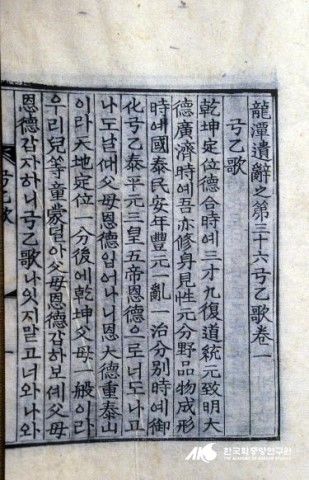 龍潭遺辭之第三十六弓乙歌卷一
弓乙歌
乾坤定位德合時예三才九復道統元致明大
德廣濟時예吾亦修身見性元分野品物成形
時예國泰民安年豐元一亂一治分別時예御
化弓乙泰平元三皇五帝恩德으로너도나고
나도날때父母恩德입어나니恩大德重泰山
이라天地定位一分後에乾坤父母一般이라
우리兒等童蒙덜아父母恩德갑하보셰父母
恩德갑자하니弓乙歌나잇지말고너와나와
弓乙歌
AKS 한국학중앙연구원
THE ACADEMY OF KOREAN STUDIES